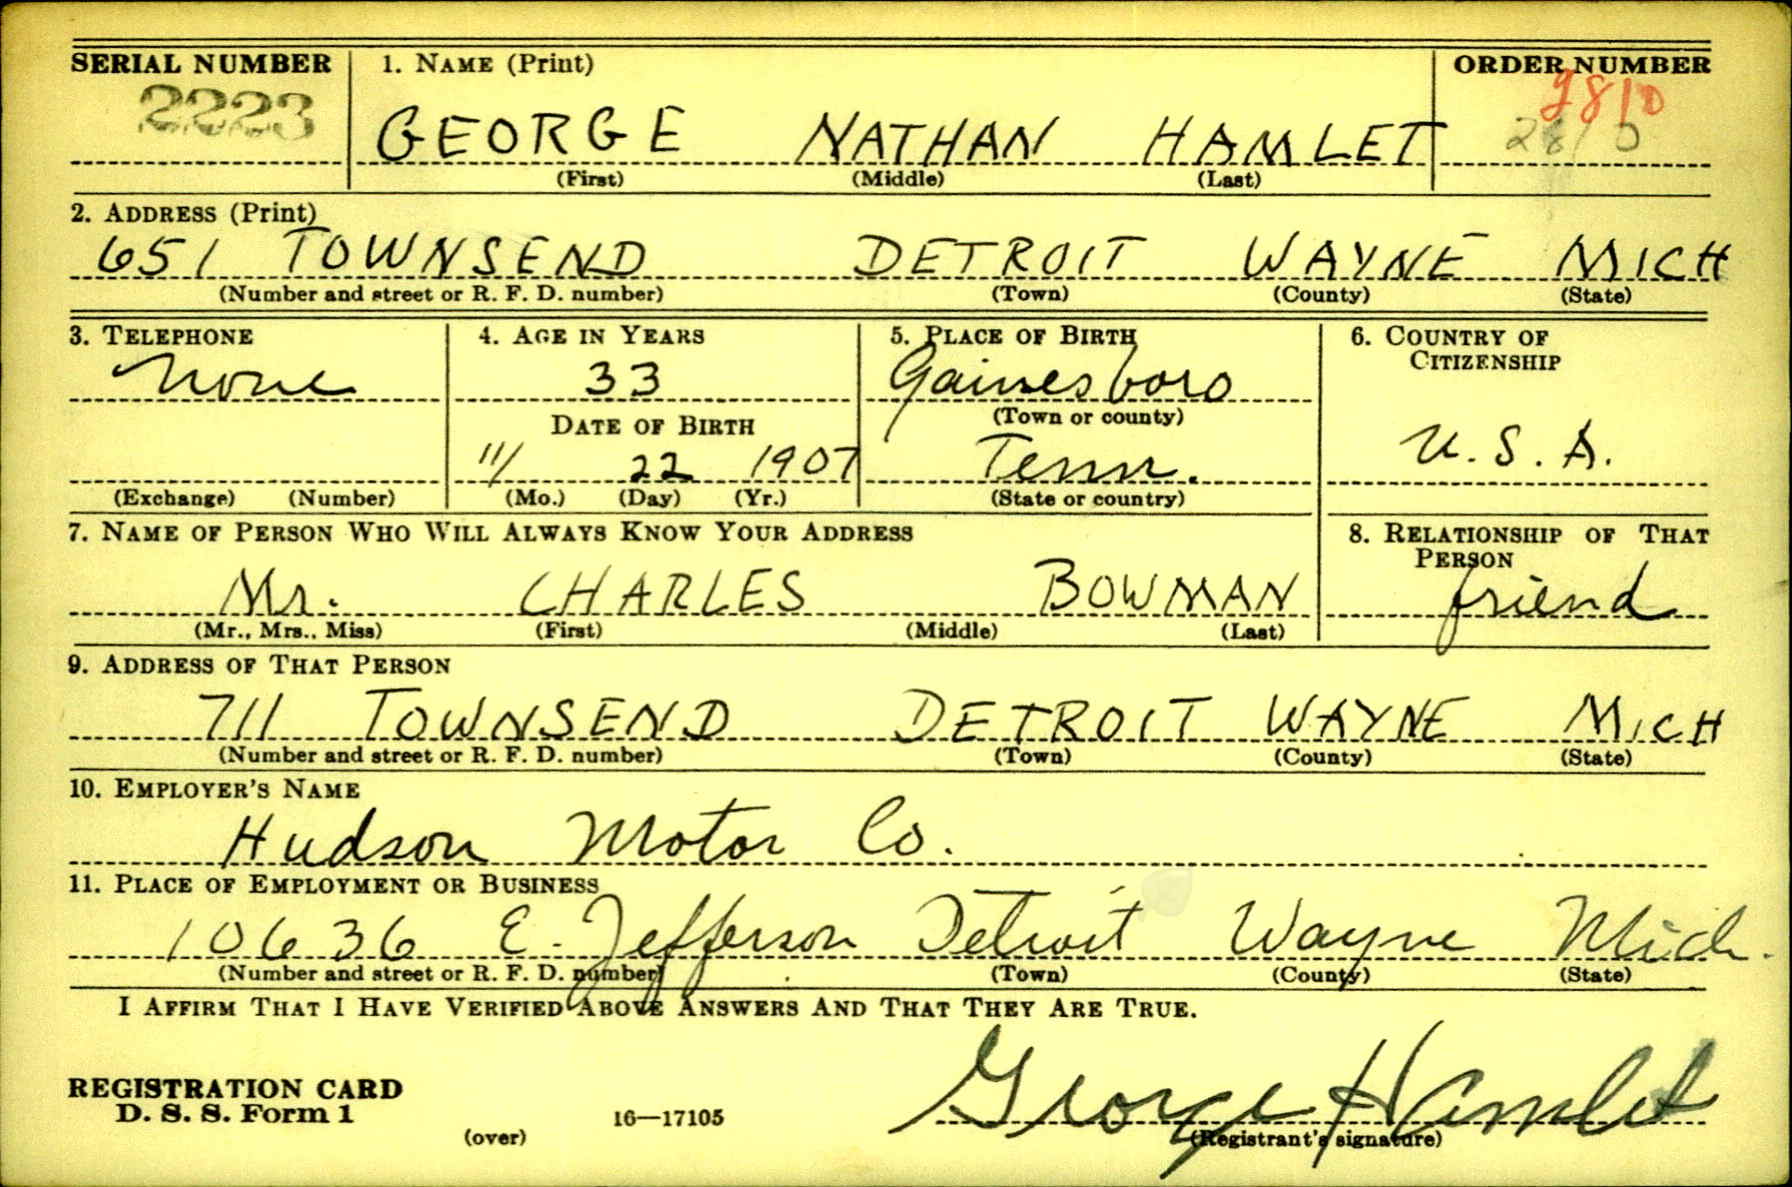 SERIAL NUMBER 1. NAME (Print) ORDER NUMBER
2223 GEORGE NATHAN HAMLET 2810
2810
(First) (Middle) (Last)
2. ADDRESS (Print)
651 TOWNSEND DETROIT WAYNE MICH
(Number and street or R. F. D. number) (Town) (County) (State)
3. TELEPHONE 4. AGE IN YEARS 5. PLACE OF BIRTH 6. COUNTRY OF
CITIZENSHIP
None 33 Gainesboro
DATE OF BIRTH (Town or county)
11/ 22 1907 Tenn. U.S.A.
(Exchange) (Number) (Mo.) (Day) (Yr.) (State or country)
7. NAME OF PERSON WHO WILL ALWAYS KNOW YOUR ADDRESS 8. RELATIONSHIP OF THAT
PERSON
Mr. CHARLES BOWMAN friend
(Mr., Mrs., Miss) (First) (Middle) (Last)
9. ADDRESS OF THAT PERSON
711 TOWNSEND DETROIT WAYNE MICH
(Number and street or R. F. D. number) (Town) (County) (State)
10. EMPLOYER'S NAME
Hudson Motor Co.
11. PLACE OF EMPLOYMENT OR BUSINESS
10636 E. Jefferson Detroit Wayne Mich.
(Number and street or R. F. D. number) (Town) (County) (State)
I AFFIRM THAT I HAVE VERIFIED ABOVE ANSWERS AND THAT THEY ARE TRUE.
George Hamlet
REGISTRATION CARD
D. S. S. Form 1 16—17105
(over) (Registrant's signature)